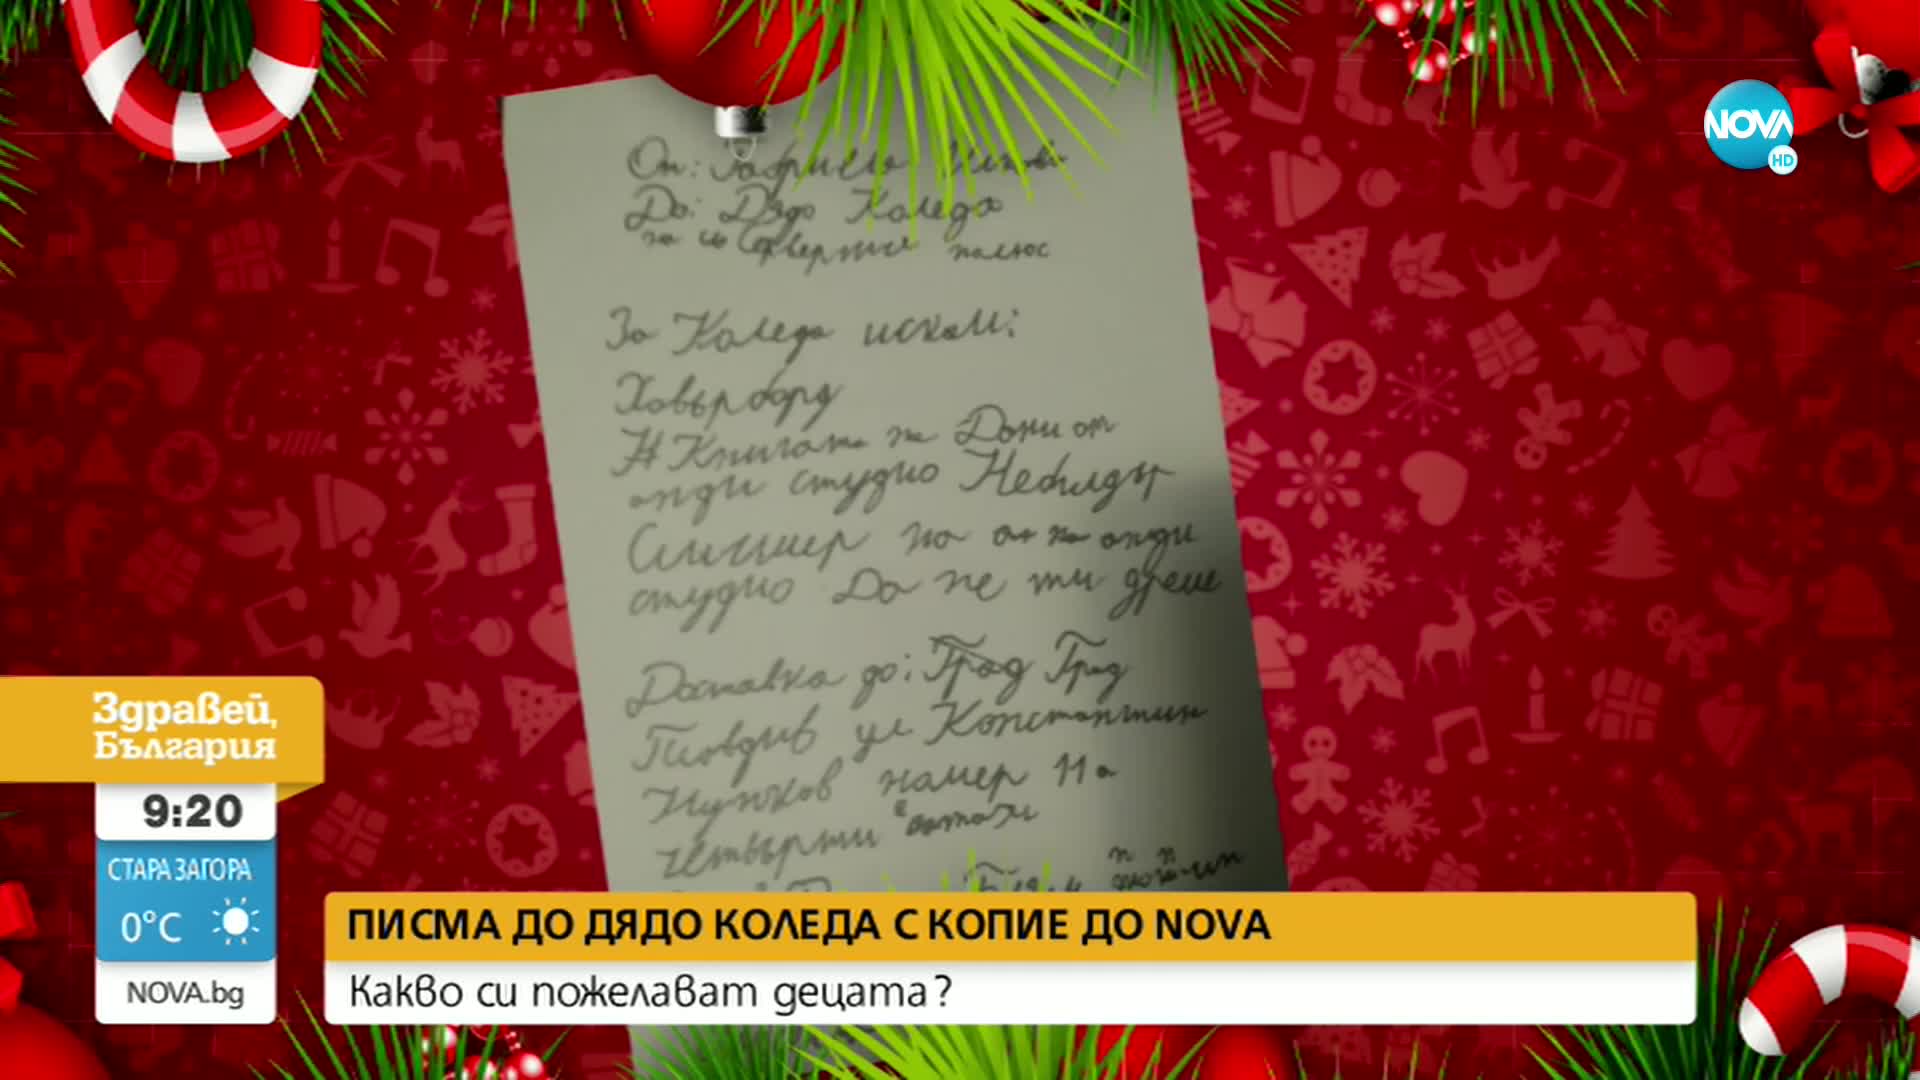 NOVA
HD
До: Дядо Коледа
полюс
За Коледа искам:
Ховърборд
Книгата на Дони от
анди студио Небилдър
Слишер на анди
студио Да не ти дреме
Доставка до: Град Град
Пловдив ул Константин
Нунков намер 11а
четвърти
Здравей,
България
9:20
СТАРА ЗАГОРА
0°C
NOVA.bg
ПИСМА ДО ДЯДО КОЛЕДА С КОПИЕ ДО NOVA
Какво си пожелават децата?